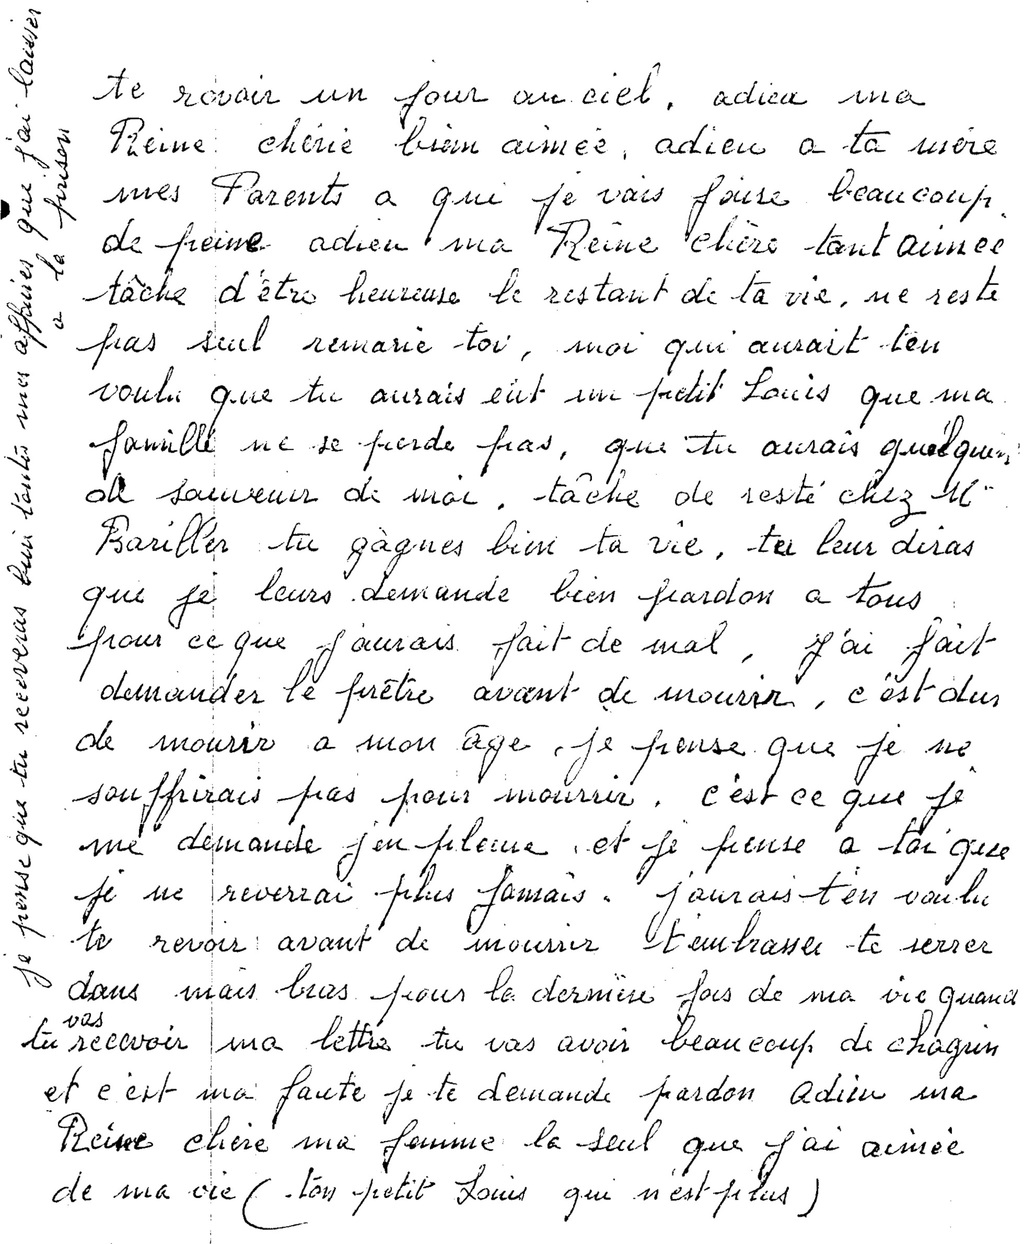 te revoir un jour au ciel, adieu ma
Reine chérie bien aimée, adieu a ta mère
mes Parents a qui je vais faire beaucoup
de peine adieu ma Reine chère tant aimée
tâche d'être heureuse le restant de ta vie, ne reste
pas seul remarie toi, moi qui aurait t'en
voulu que tu aurais eût un petit Louis que ma
famille ne se perde pas, que tu aurais
de souvenir de moi, tâche de resté chez Mr
Bariller tu gâgnes bien ta vie, tu leur diras
que je leurs demande bien pardon a tous
pour ce que j'aurais fait de mal, j'ai fait
demander le prêtre avant de mourir, c'est dur
de mourir a mon âge, je pense que je ne
souffrirais pas pour mourrir, c'est ce que je
me demande j'en pleure, et je pense a toi que
je ne reverrai plus jamais. j'aurais t'en voulu
te revoir avant de mourrir t'embrasser te serrer
dans mais bras pour la dernière fois de ma vie quand
tu vas recevoir ma lettre tu vas avoir beaucoup de chagrin
et c'est ma faute je te demande pardon Adieu ma
Reine chère ma femme la seul que j'ai aimée
de ma vie (ton petit Louis qui n'est plus)
je pense que tu receveras bien toutes mes affaires que j'ai laisser
a la prison